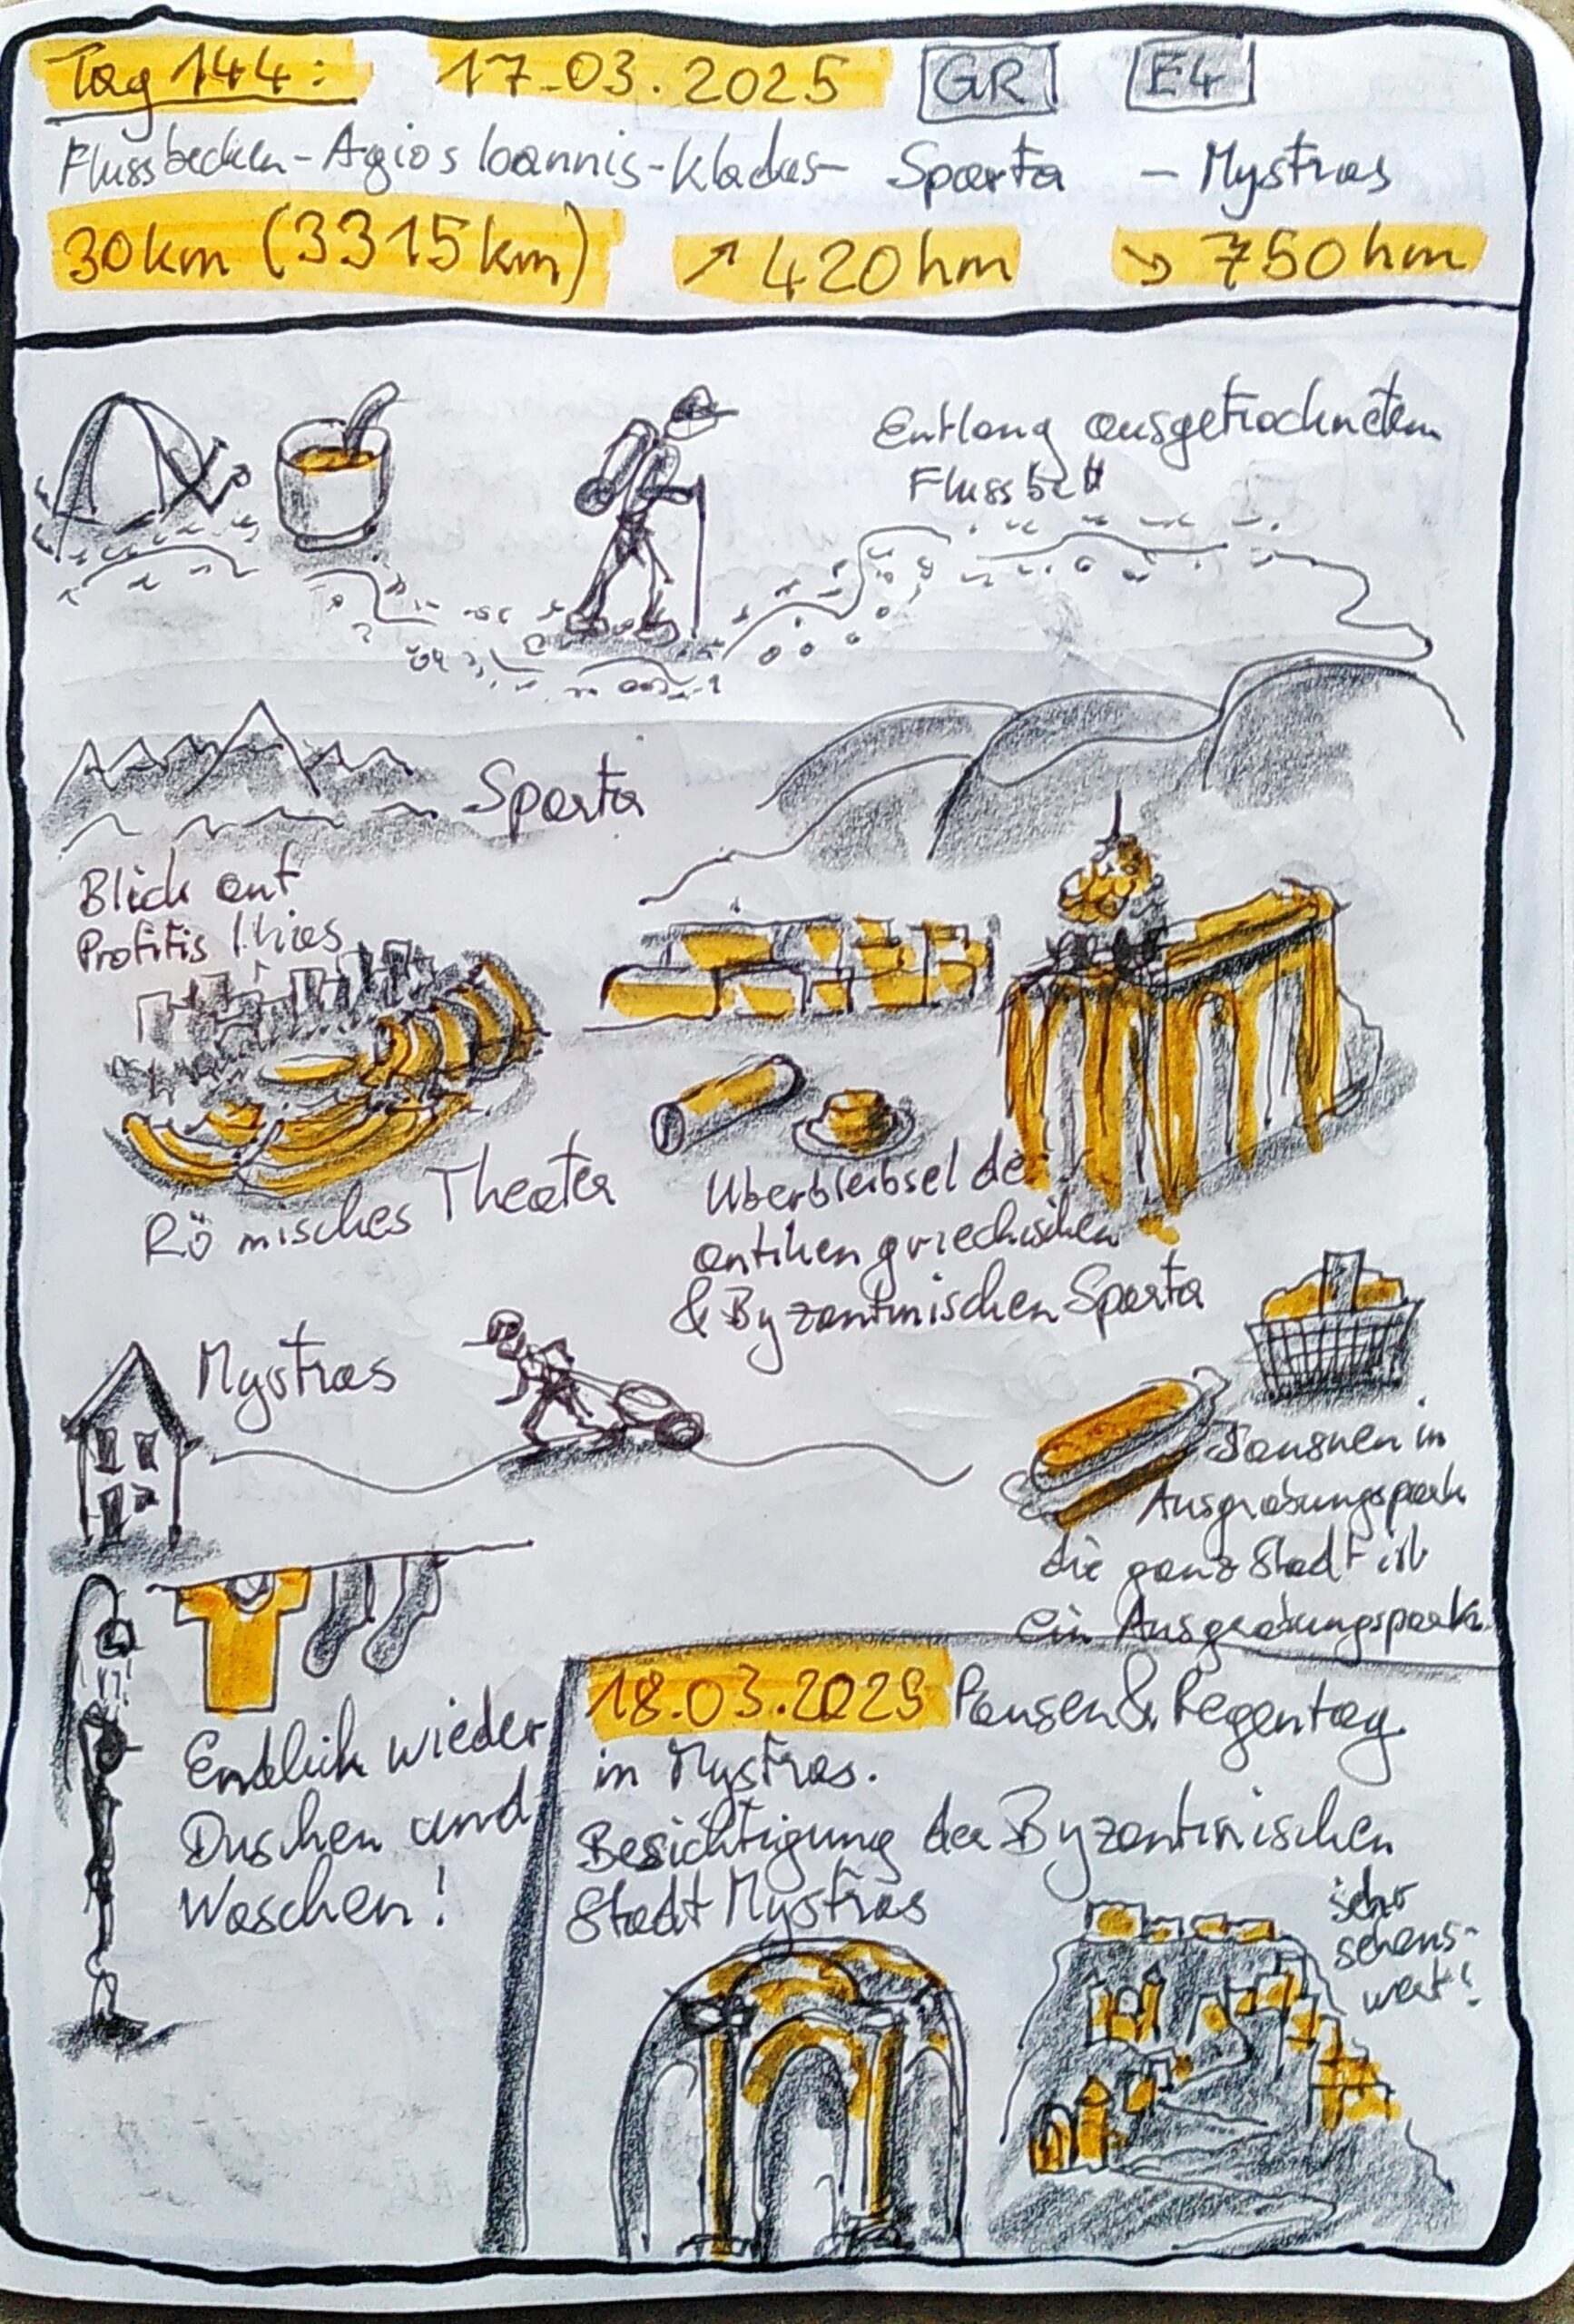 Tag 144: 17.03.2025 GR E4
Flussbecken-Agios Ioannis-Kladas- Sparta - Mystras
30km (3315km) ↗ 420hm ↘ 750hm
Entlang ausgetrocknetem
Flussbett
Sparta
Blick auf
Profitis Ilias
Römisches Theater
Überbleibsel des
antiken griechischen
& Byzantinischen Sparta
Mystras
in
Ausgrabungspark
die ganze Stadt ist
ein Ausgrabungspark
Endlich wieder
Duschen und
Waschen!
18.03.2025 Pausen & Regentag
in Mystras.
Besichtigung der Byzantinischen
Stadt Mystras
sehr
sehens-
wert!